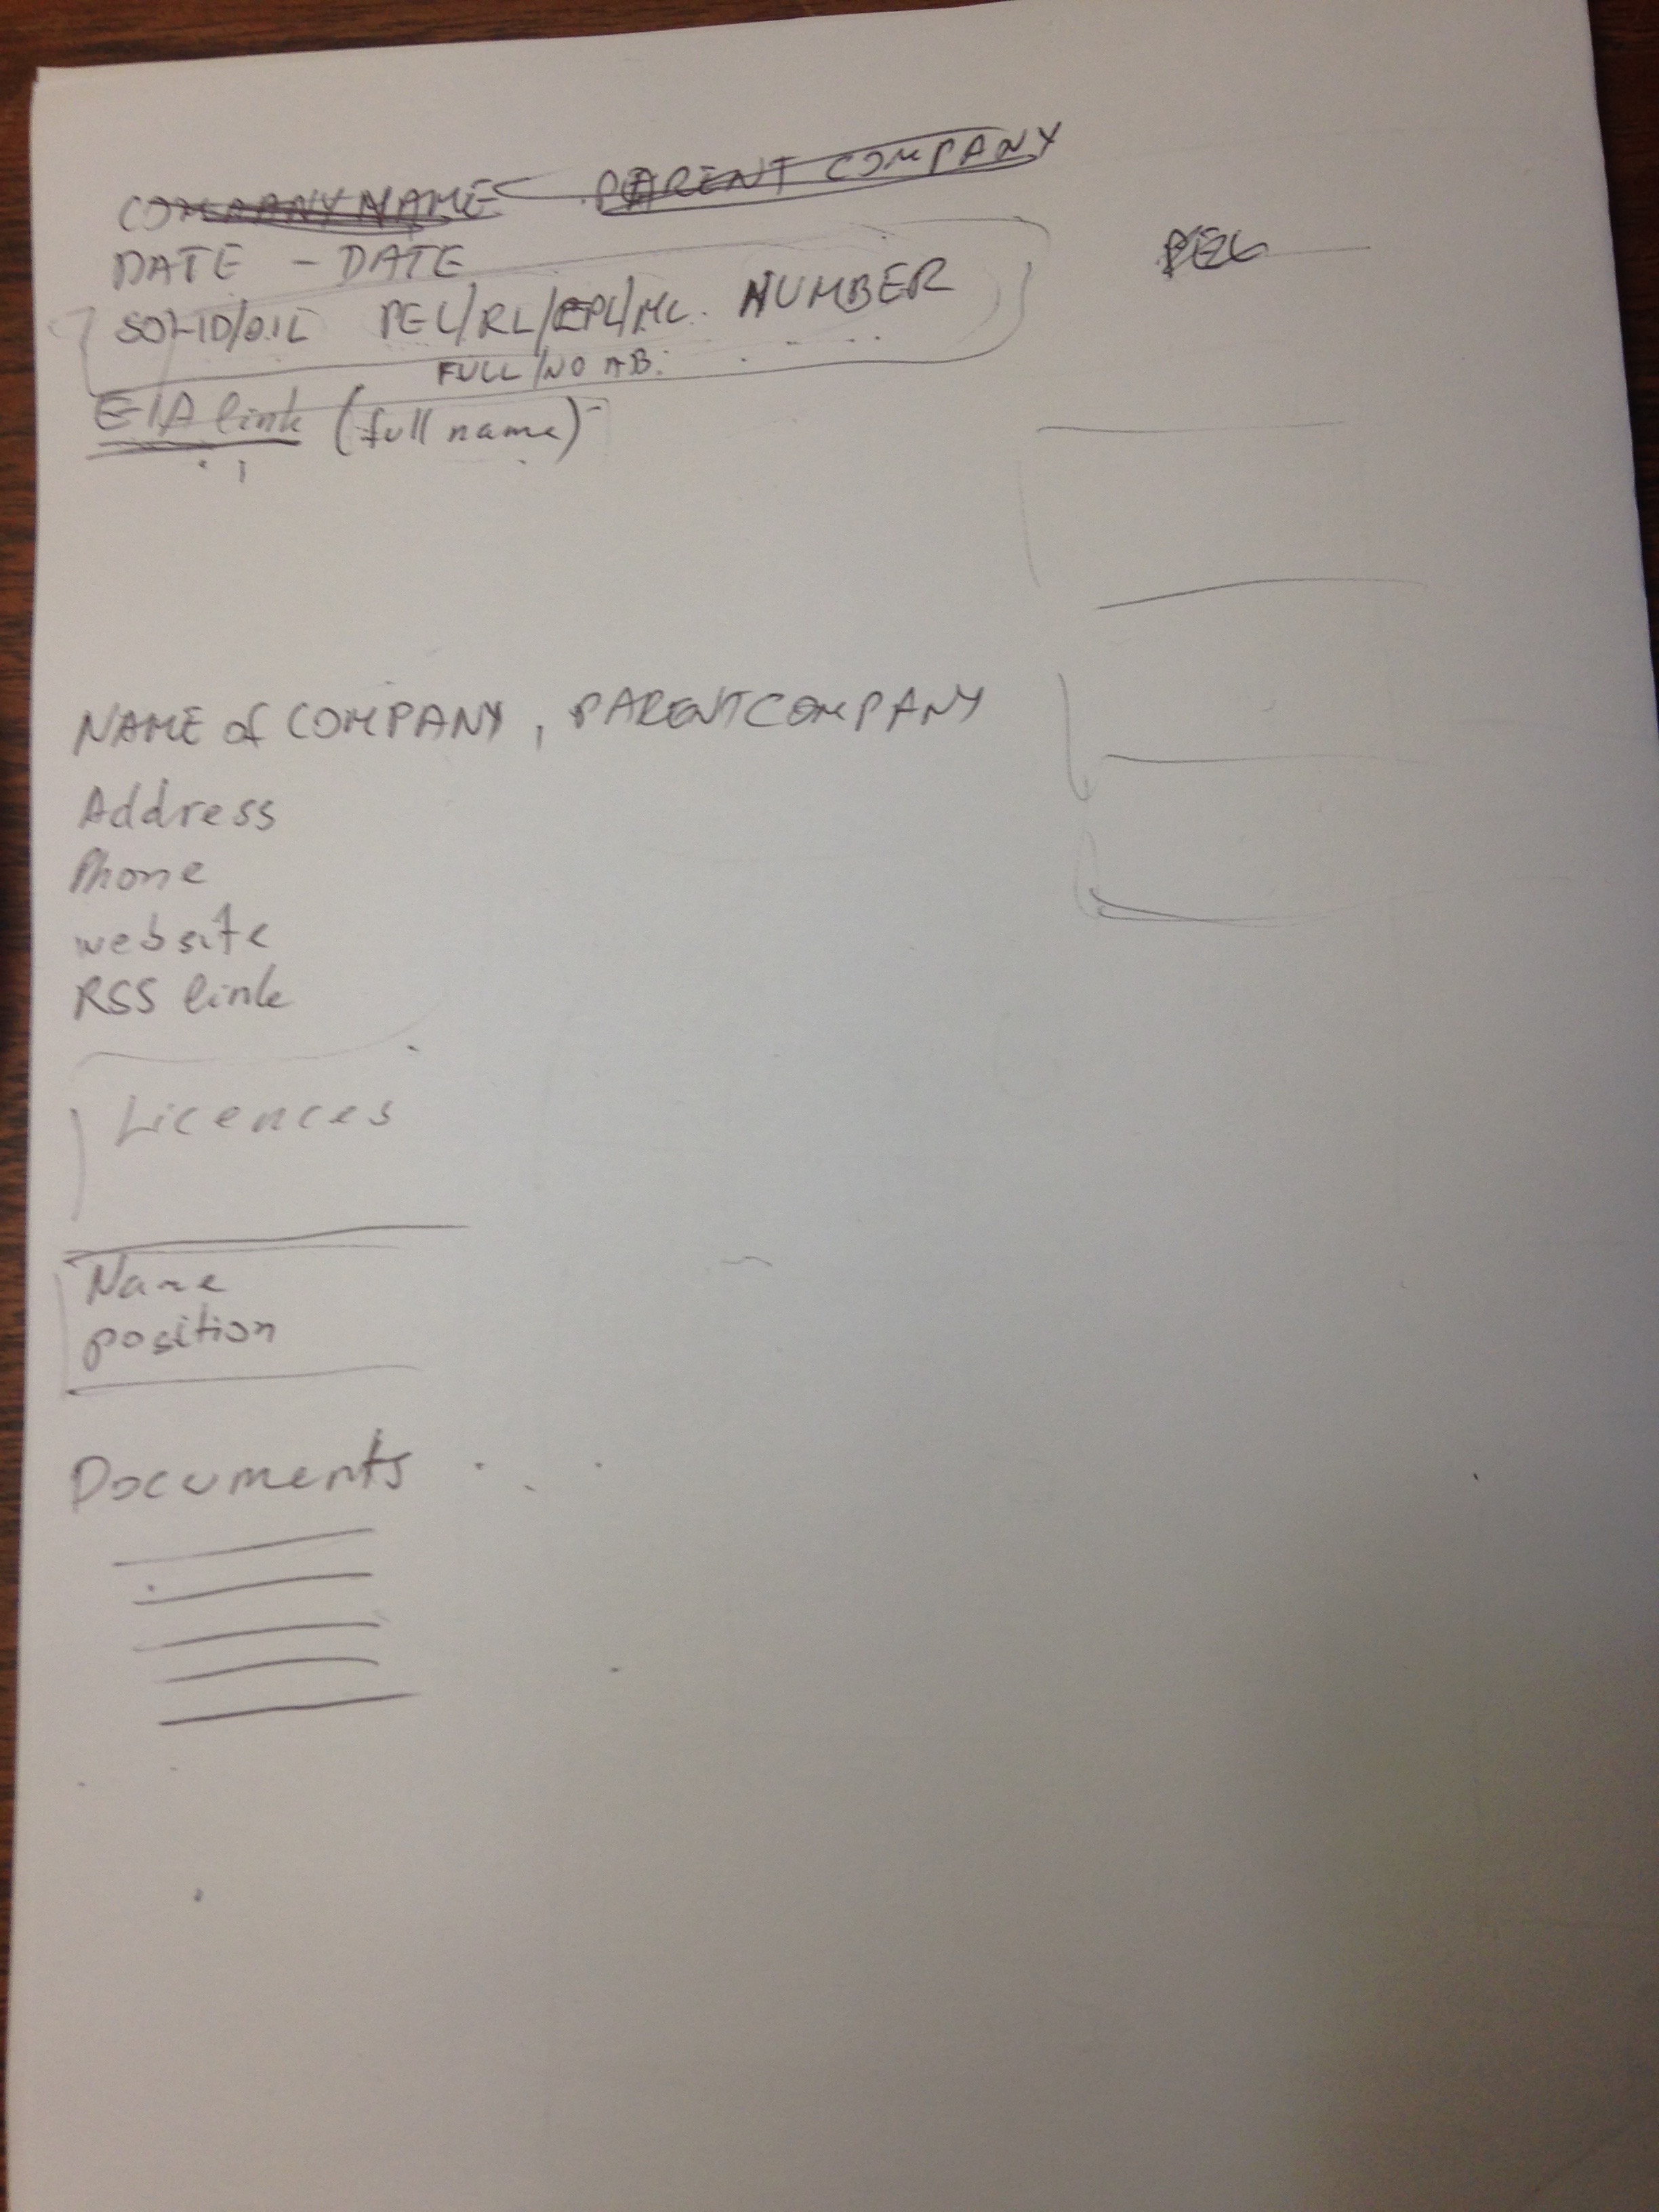 COMPANY NAME PARENT COMPANY
DATE - DATE
SOLID/OIL PEL/RL/EPL/ML. NUMBER
FULL/NO AB.
EIA link (full name)
PEL
NAME of COMPANY, PARENT COMPANY
Address
Phone
website
RSS link
Licences
Name
position
Documents